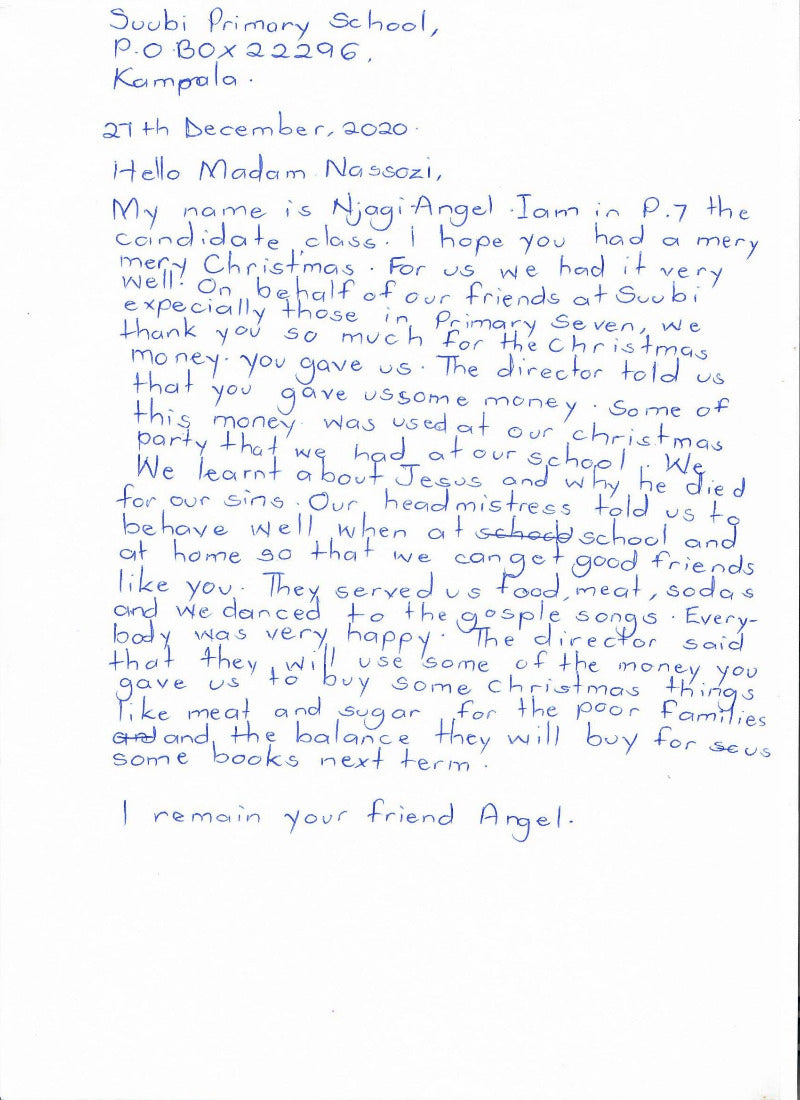 Suubi Primary School,
P.O BOX 22296,
Kampala.
27th December, 2020.
Hello Madam Nassozi,
My name is Njagi Angel. Iam in P.7 the
candidate class. I hope you had a mery
mery Christmas. For us we had it very
well. On behalf of our friends at Suubi
expecially those in Primary Seven, we
thank you so much for the Christmas
money. you gave us. The director told us
that you gave ussome money. Some of
this money was used at our christmas
party that we had at our school. We
We learnt about Jesus and why he died
for our sins. Our headmistress told us to
behave well when at school school and
at home so that we can get good friends
like you. They served us food, meat, sodas
and we danced to the gosple songs. Every-
body was very happy. The director said
that they will use some of the money you
gave us to buy some christmas things
like meat and sugar for the poor families
and and the balance they will buy for us
some books next term.
I remain your friend Angel.